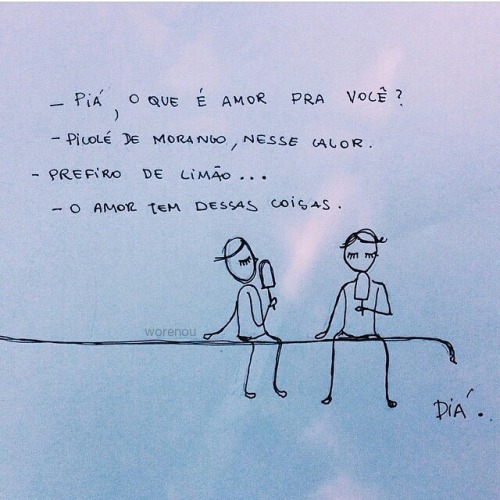 — PIÁ, O QUE É AMOR PRA VOCÊ?
- PICOLÉ DE MORANGO, NESSE CALOR.
- PREFIRO DE LIMÃO...
- O AMOR TEM DESSAS COISAS.
worenou
PIÁ.